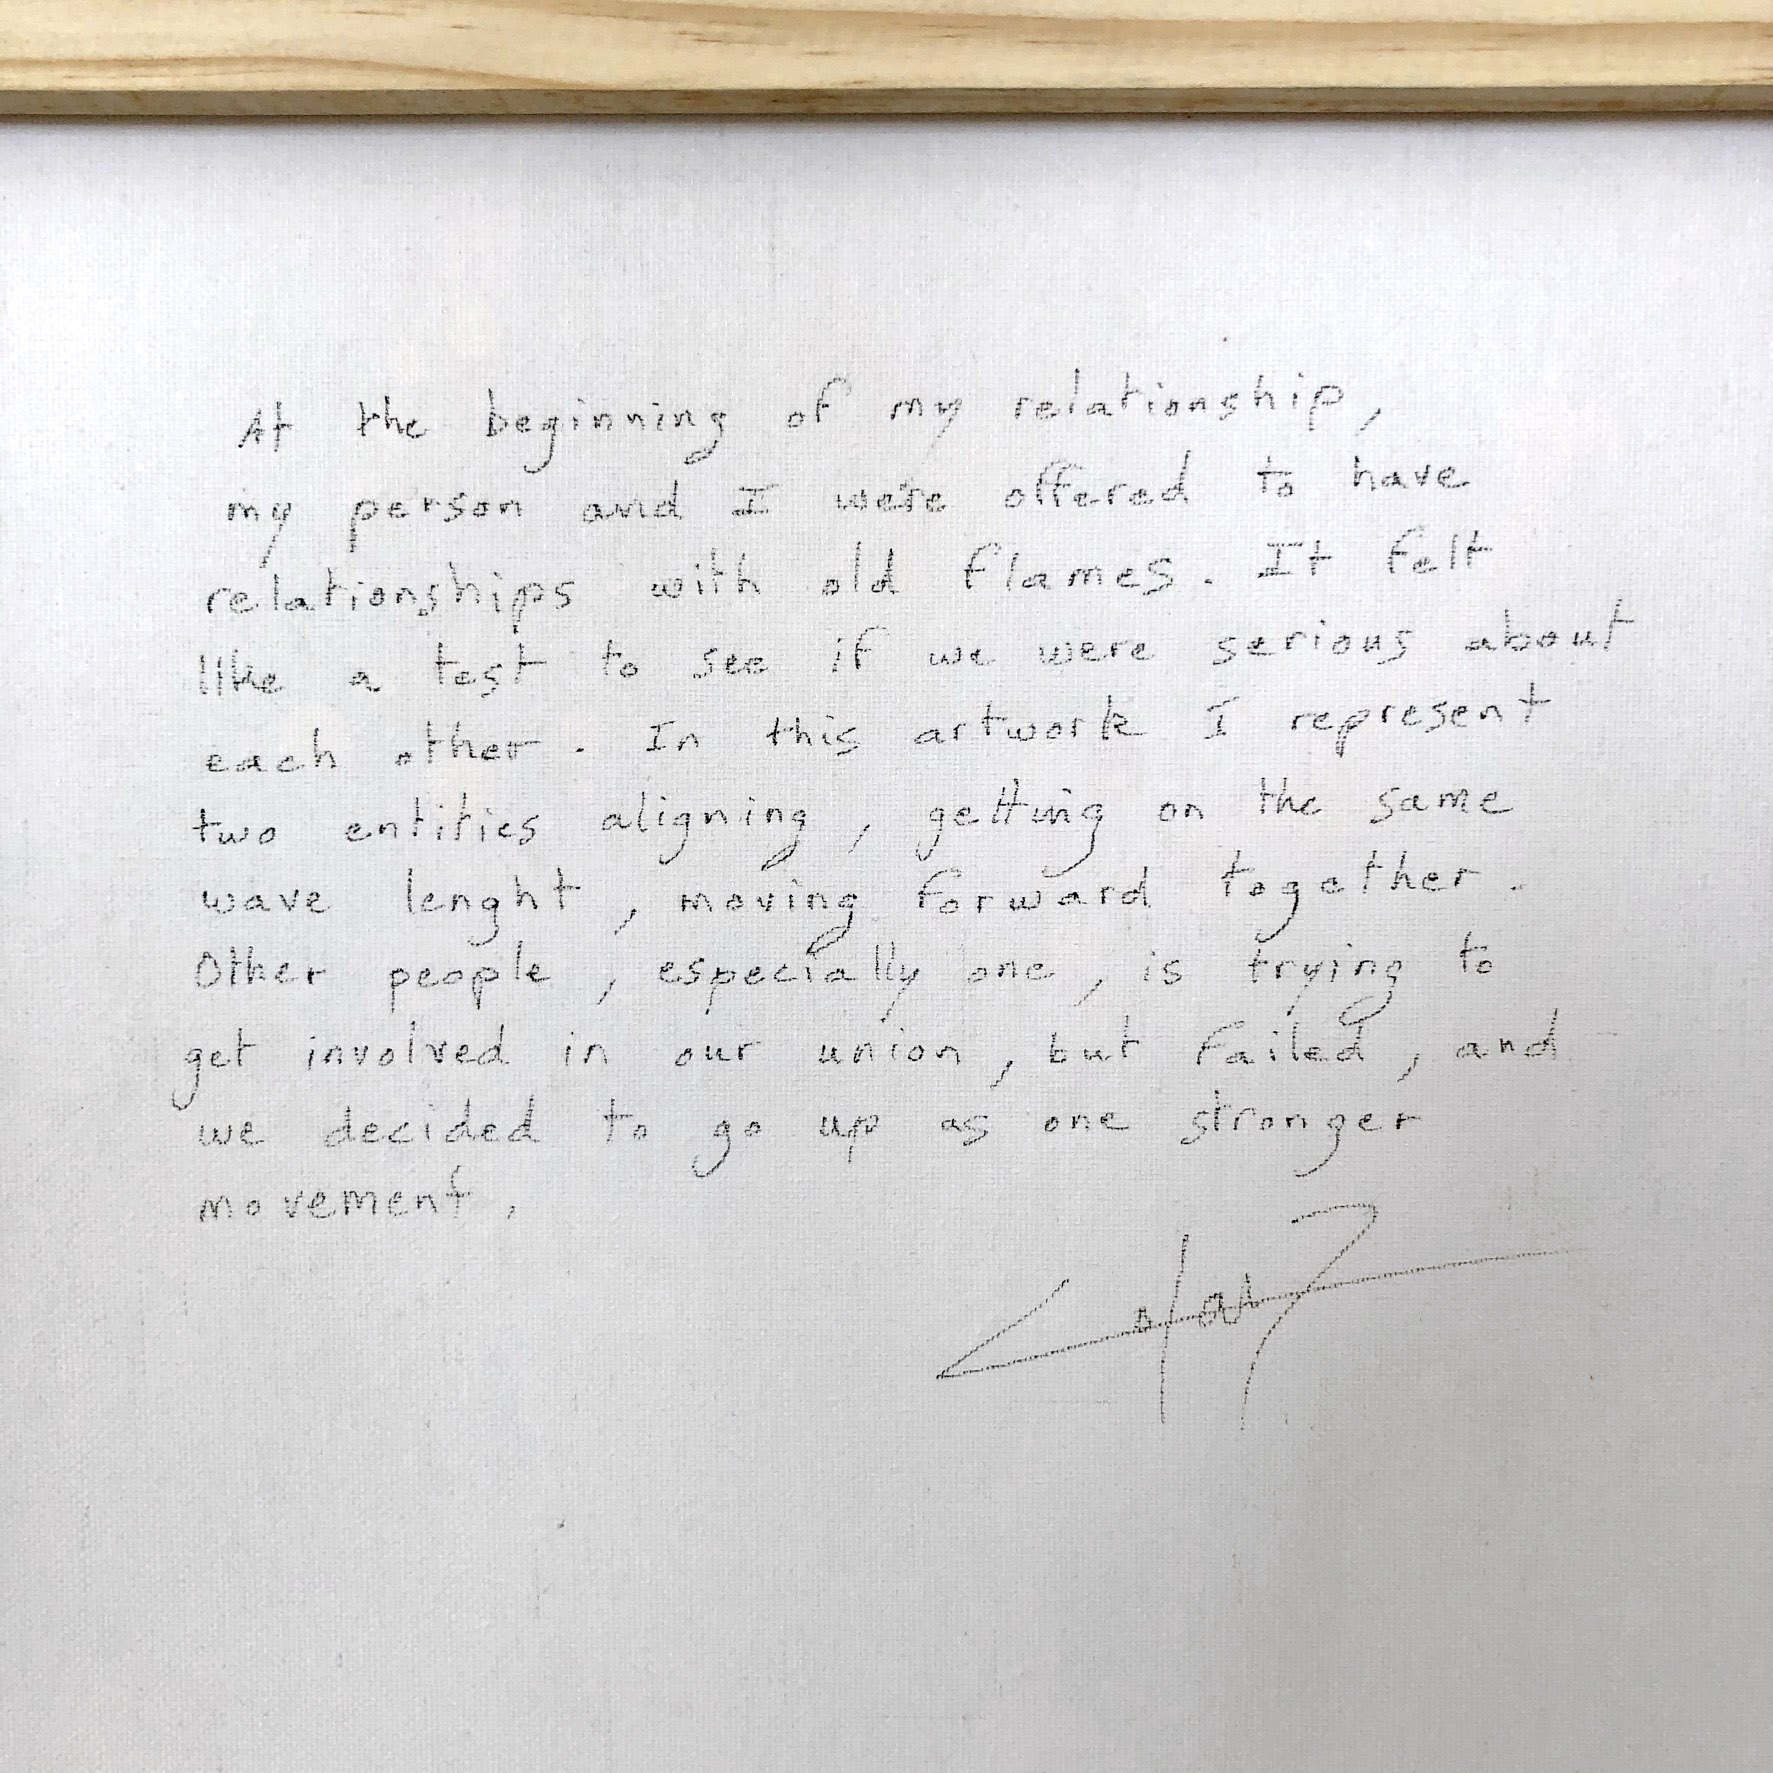 At the beginning of my relationship,
my person and I were offered to have
relationships with old flames. It felt
like a test to see if we were serious about
each other. In this artwork I represent
two entities aligning, getting on the same
wave lenght, moving forward together.
Other people, especially one, is trying to
get involved in our union, but failed, and
we decided to go up as one stronger
movement.